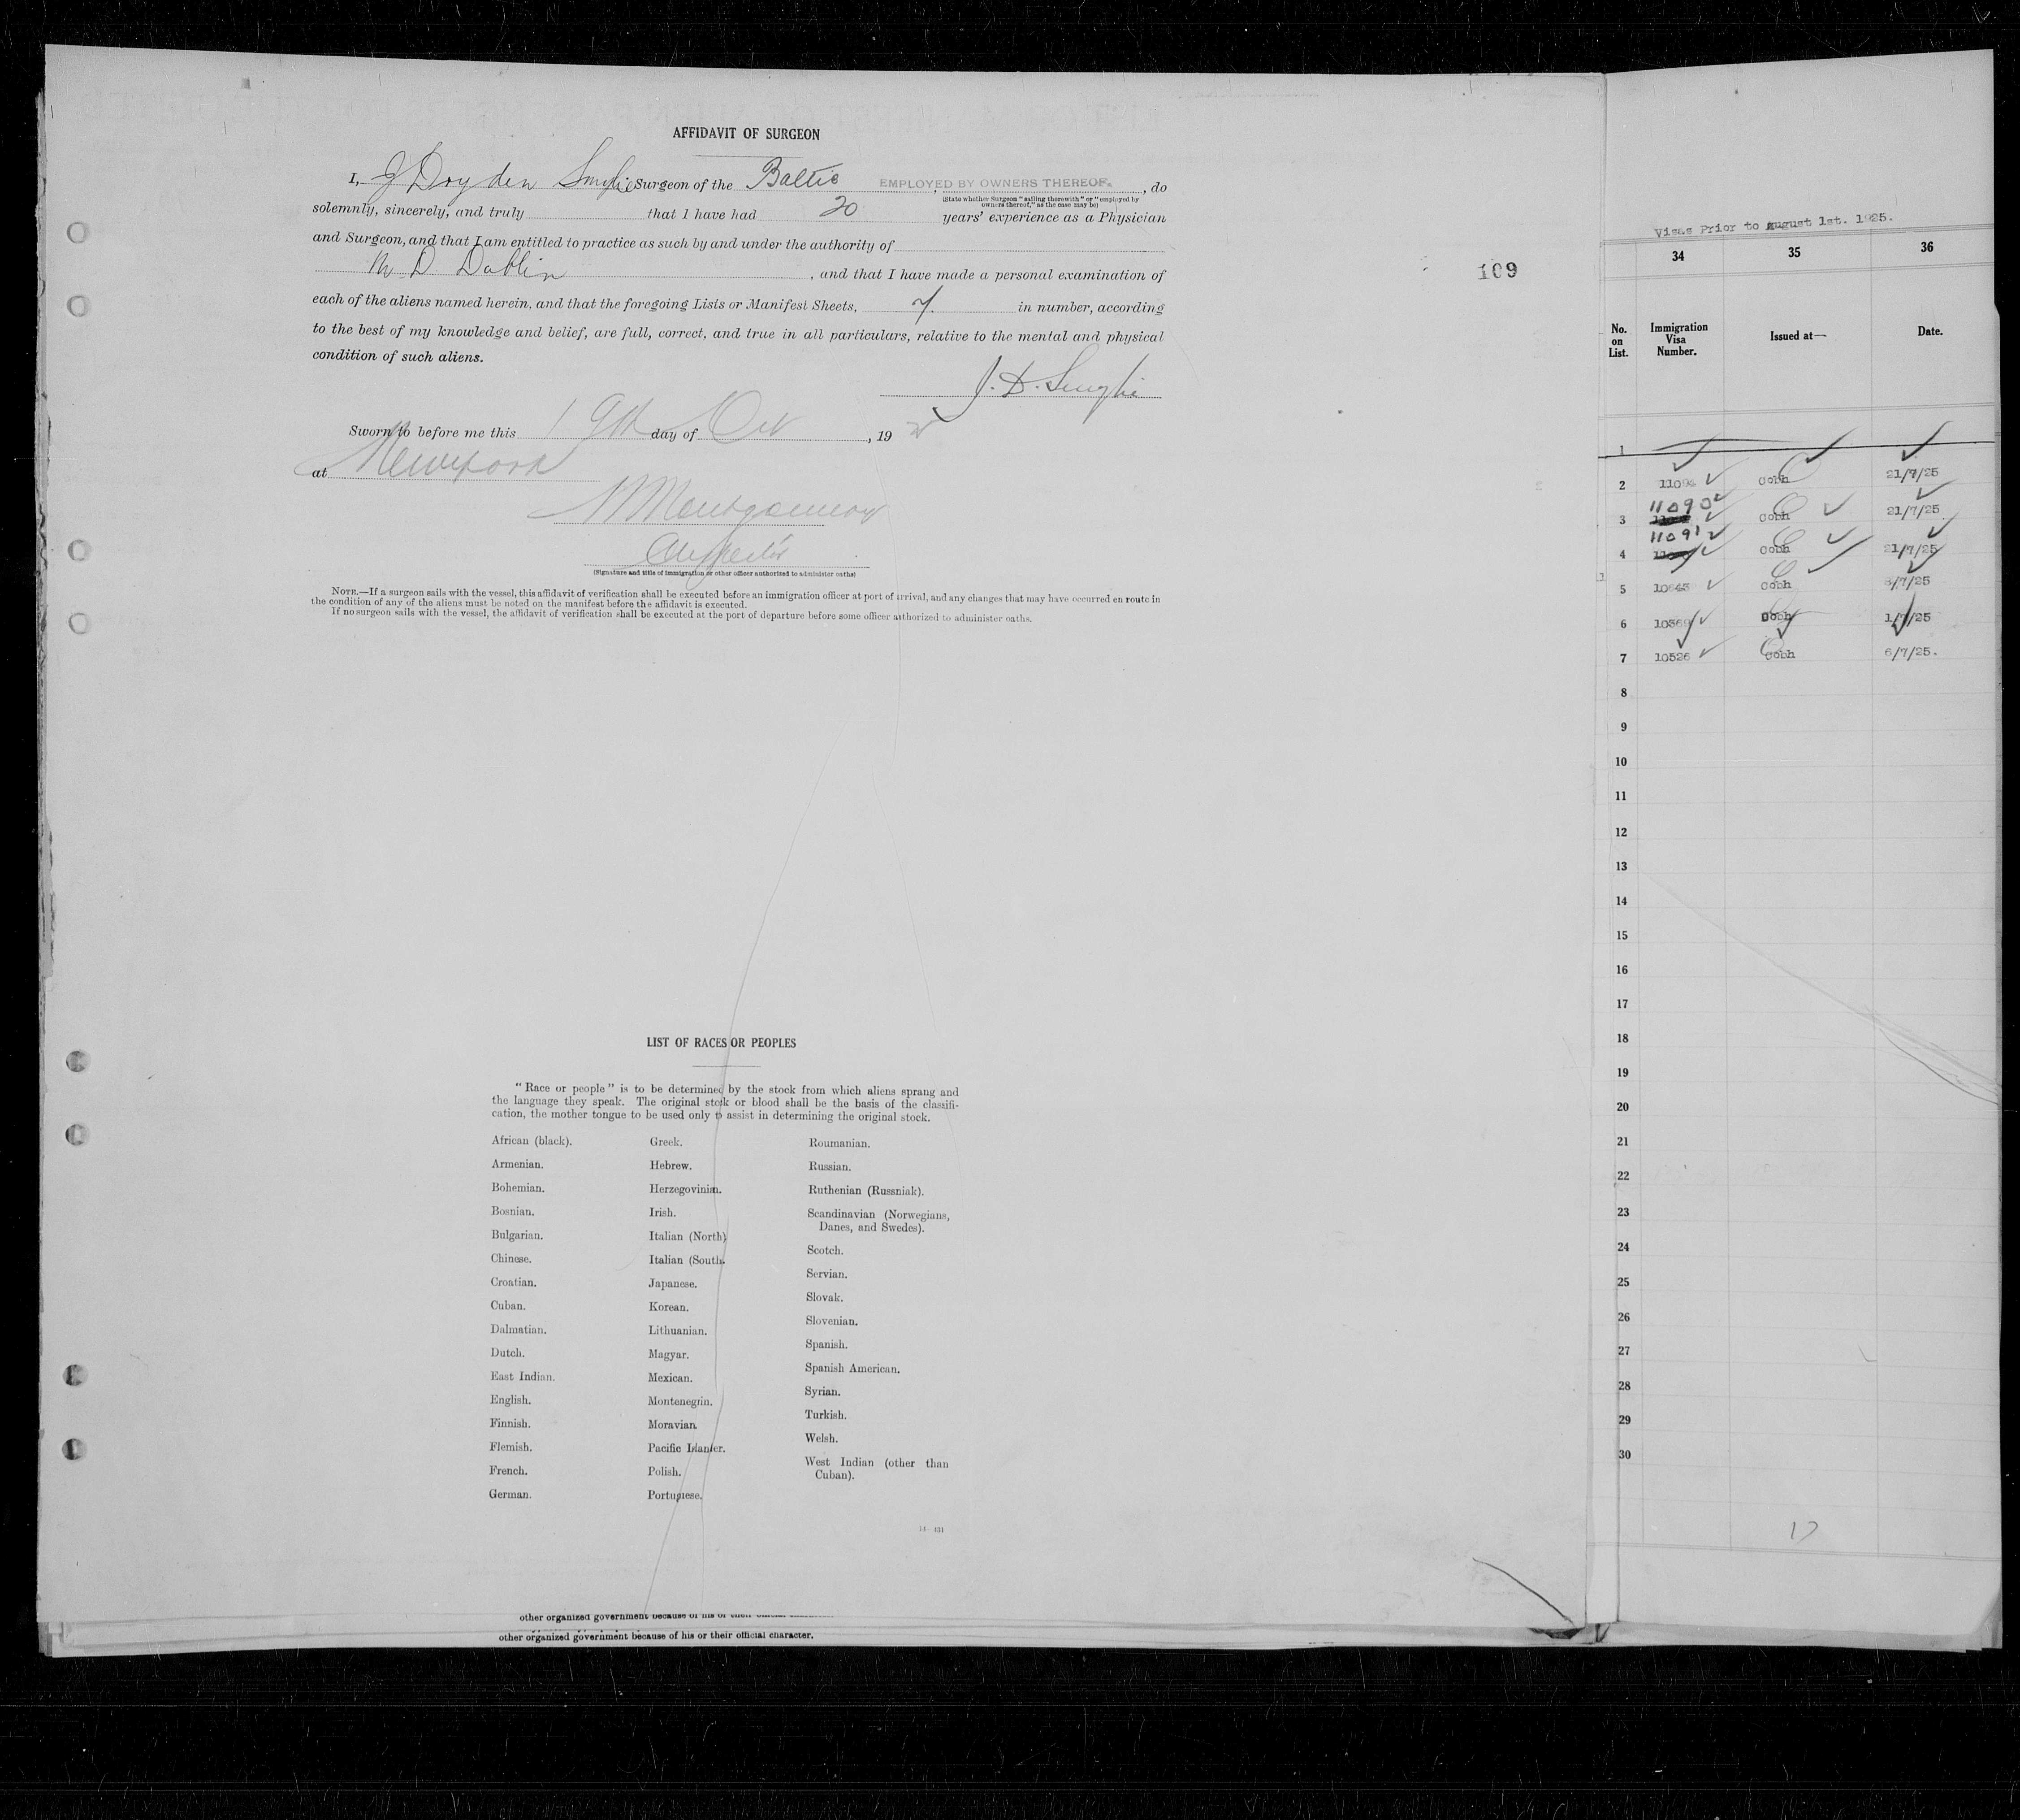 AFFIDAVIT OF SURGEON
I, J Dryden Smylie Surgeon of the Baltic EMPLOYED BY OWNERS THEREOF., do
(State whether Surgeon "sailing therewith" or "employed by
owners thereof," as the case may be)
solemnly, sincerely, and truly that I have had 20 years' experience as a Physician
and Surgeon, and that I am entitled to practice as such by and under the authority of
M D Dublin, and that I have made a personal examination of
each of the aliens named herein, and that the foregoing Lists or Manifest Sheets, 7. in number, according
to the best of my knowledge and belief, are full, correct, and true in all particulars, relative to the mental and physical
condition of such aliens.
J. D. Smylie
Sworn to before me this 19th day of Oct, 192
at New York
Montgomery
Inspector
(Signature and title of immigration or other officer authorized to administer oaths)
NOTE.—If a surgeon sails with the vessel, this affidavit of verification shall be executed before an immigration officer at port of arrival, and any changes that may have occurred en route in
the condition of any of the aliens must be noted on the manifest before the affidavit is executed.
If no surgeon sails with the vessel, the affidavit of verification shall be executed at the port of departure before some officer authorized to administer oaths.
109
LIST OF RACES OR PEOPLES
"Race or people" is to be determined by the stock from which aliens sprang and
the language they speak. The original stock or blood shall be the basis of the classifi-
cation, the mother tongue to be used only to assist in determining the original stock.
African (black).
Armenian.
Bohemian.
Bosnian.
Bulgarian.
Chinese.
Croatian.
Cuban.
Dalmatian.
Dutch.
East Indian.
English.
Finnish.
Flemish.
French.
German.
Greek.
Hebrew.
Herzegovinian.
Irish.
Italian (North).
Italian (South).
Japanese.
Korean.
Lithuanian.
Magyar.
Mexican.
Montenegrin.
Moravian.
Pacific Islander.
Polish.
Portuguese.
Roumanian.
Russian.
Ruthenian (Russniak).
Scandinavian (Norwegians,
Danes, and Swedes).
Scotch.
Servian.
Slovak.
Slovenian.
Spanish.
Spanish American.
Syrian.
Turkish.
Welsh.
West Indian (other than
Cuban).
other organized government because of his or their
other organized government because of his or their official character.
Visas Prior to August 1st. 1925.
34 35 36
No.
on
List.
Immigration
Visa
Number.
Issued at—
Date.
1
2 Cobh 21/7/25
3 11090 Cobh 21/7/25
4 11091 Cobh 21/7/25
5 Cobh /7/25
6 Cobh 1/7/25
7 10526 Cobh 6/7/25.
8
9
10
11
12
13
14
15
16
17
18
19
20
21
22
23
24
25
26
27
28
29
30